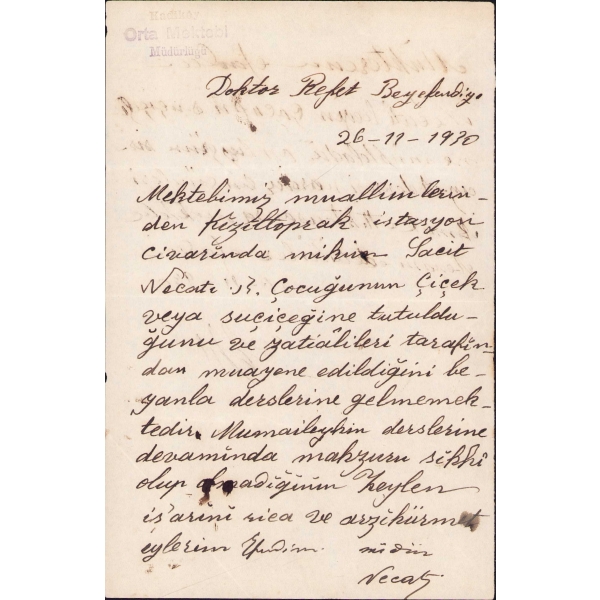 Kadiköy
Orta Mektebi
Müdürlüğü
Doktor Refet Beyefendiye
26-11-1930
Mektebimiz muallimlerin-
den Kiziltoprak istasyoni
civarında mikim Sacit
Necati B. Çocuğunun Çiçek
veya suçiçeğine tutuldu-
ğunu ve zatıâlileri tarafın-
dan muayene edildiğini be-
yanla derslerine gelmemek-
tedir. Mumaileyhin derslerine
devamında mahzuru sıhhî
olup olmadığının zeylen
iş'arını rica ve arzihürmet
eylerim Efendim.
Necati